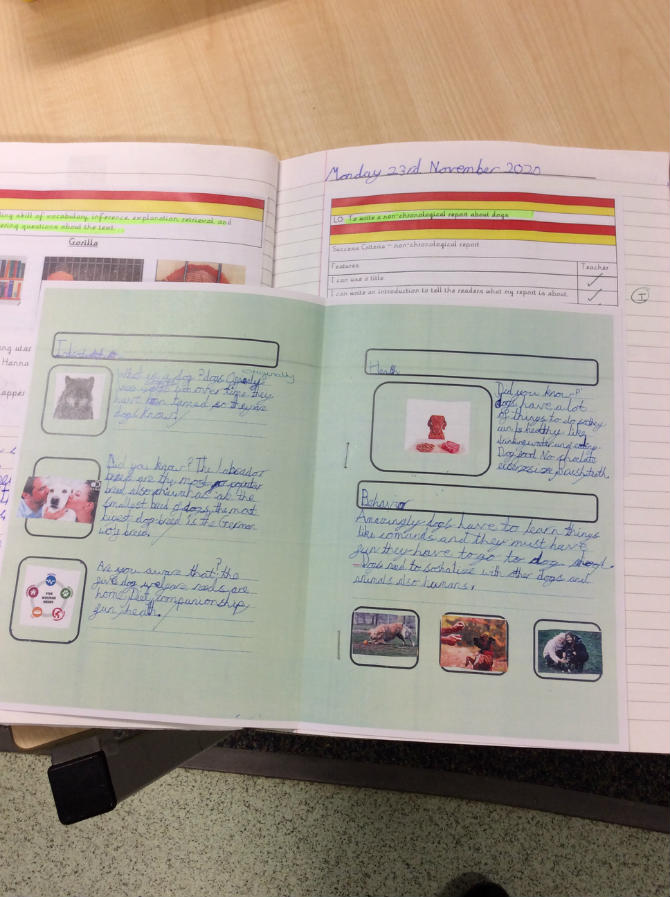 ing skill of vocabulary, inference, explanation, retrieval, and
ering questions about the text.
Gorilla
ng utar
Hanna
apper
Monday 23rd November 2020
LO: To write a non-chronological report about dogs
Success Criteria – non-chronological report
Features
Teacher
I can use a title.
I can write an introduction to tell the readers what my report is about.
I
What is a dog? dogs
originally
over time they
have been tamed so they're
dogs know
Did you know? The Labrador
breed are the most popular
breed also are the
smallest breed of dogs, the most
bigest dog breed is the German
breed.
FIVE
WELFARE
NEEDS
Are you aware that? the
five dog welfare needs are
home, Diet, companionship,
fun, heath.
Health
Did you know?
dogs have a lot
of things to do so they
can be healthy like
drinking water and eating
Dog food No
brush teeth
Behavior
Amazingly dogs have to learn things
like comands and they must have
fun they have to go to dog
dogs need to socialise with other dogs and
animals also humans.